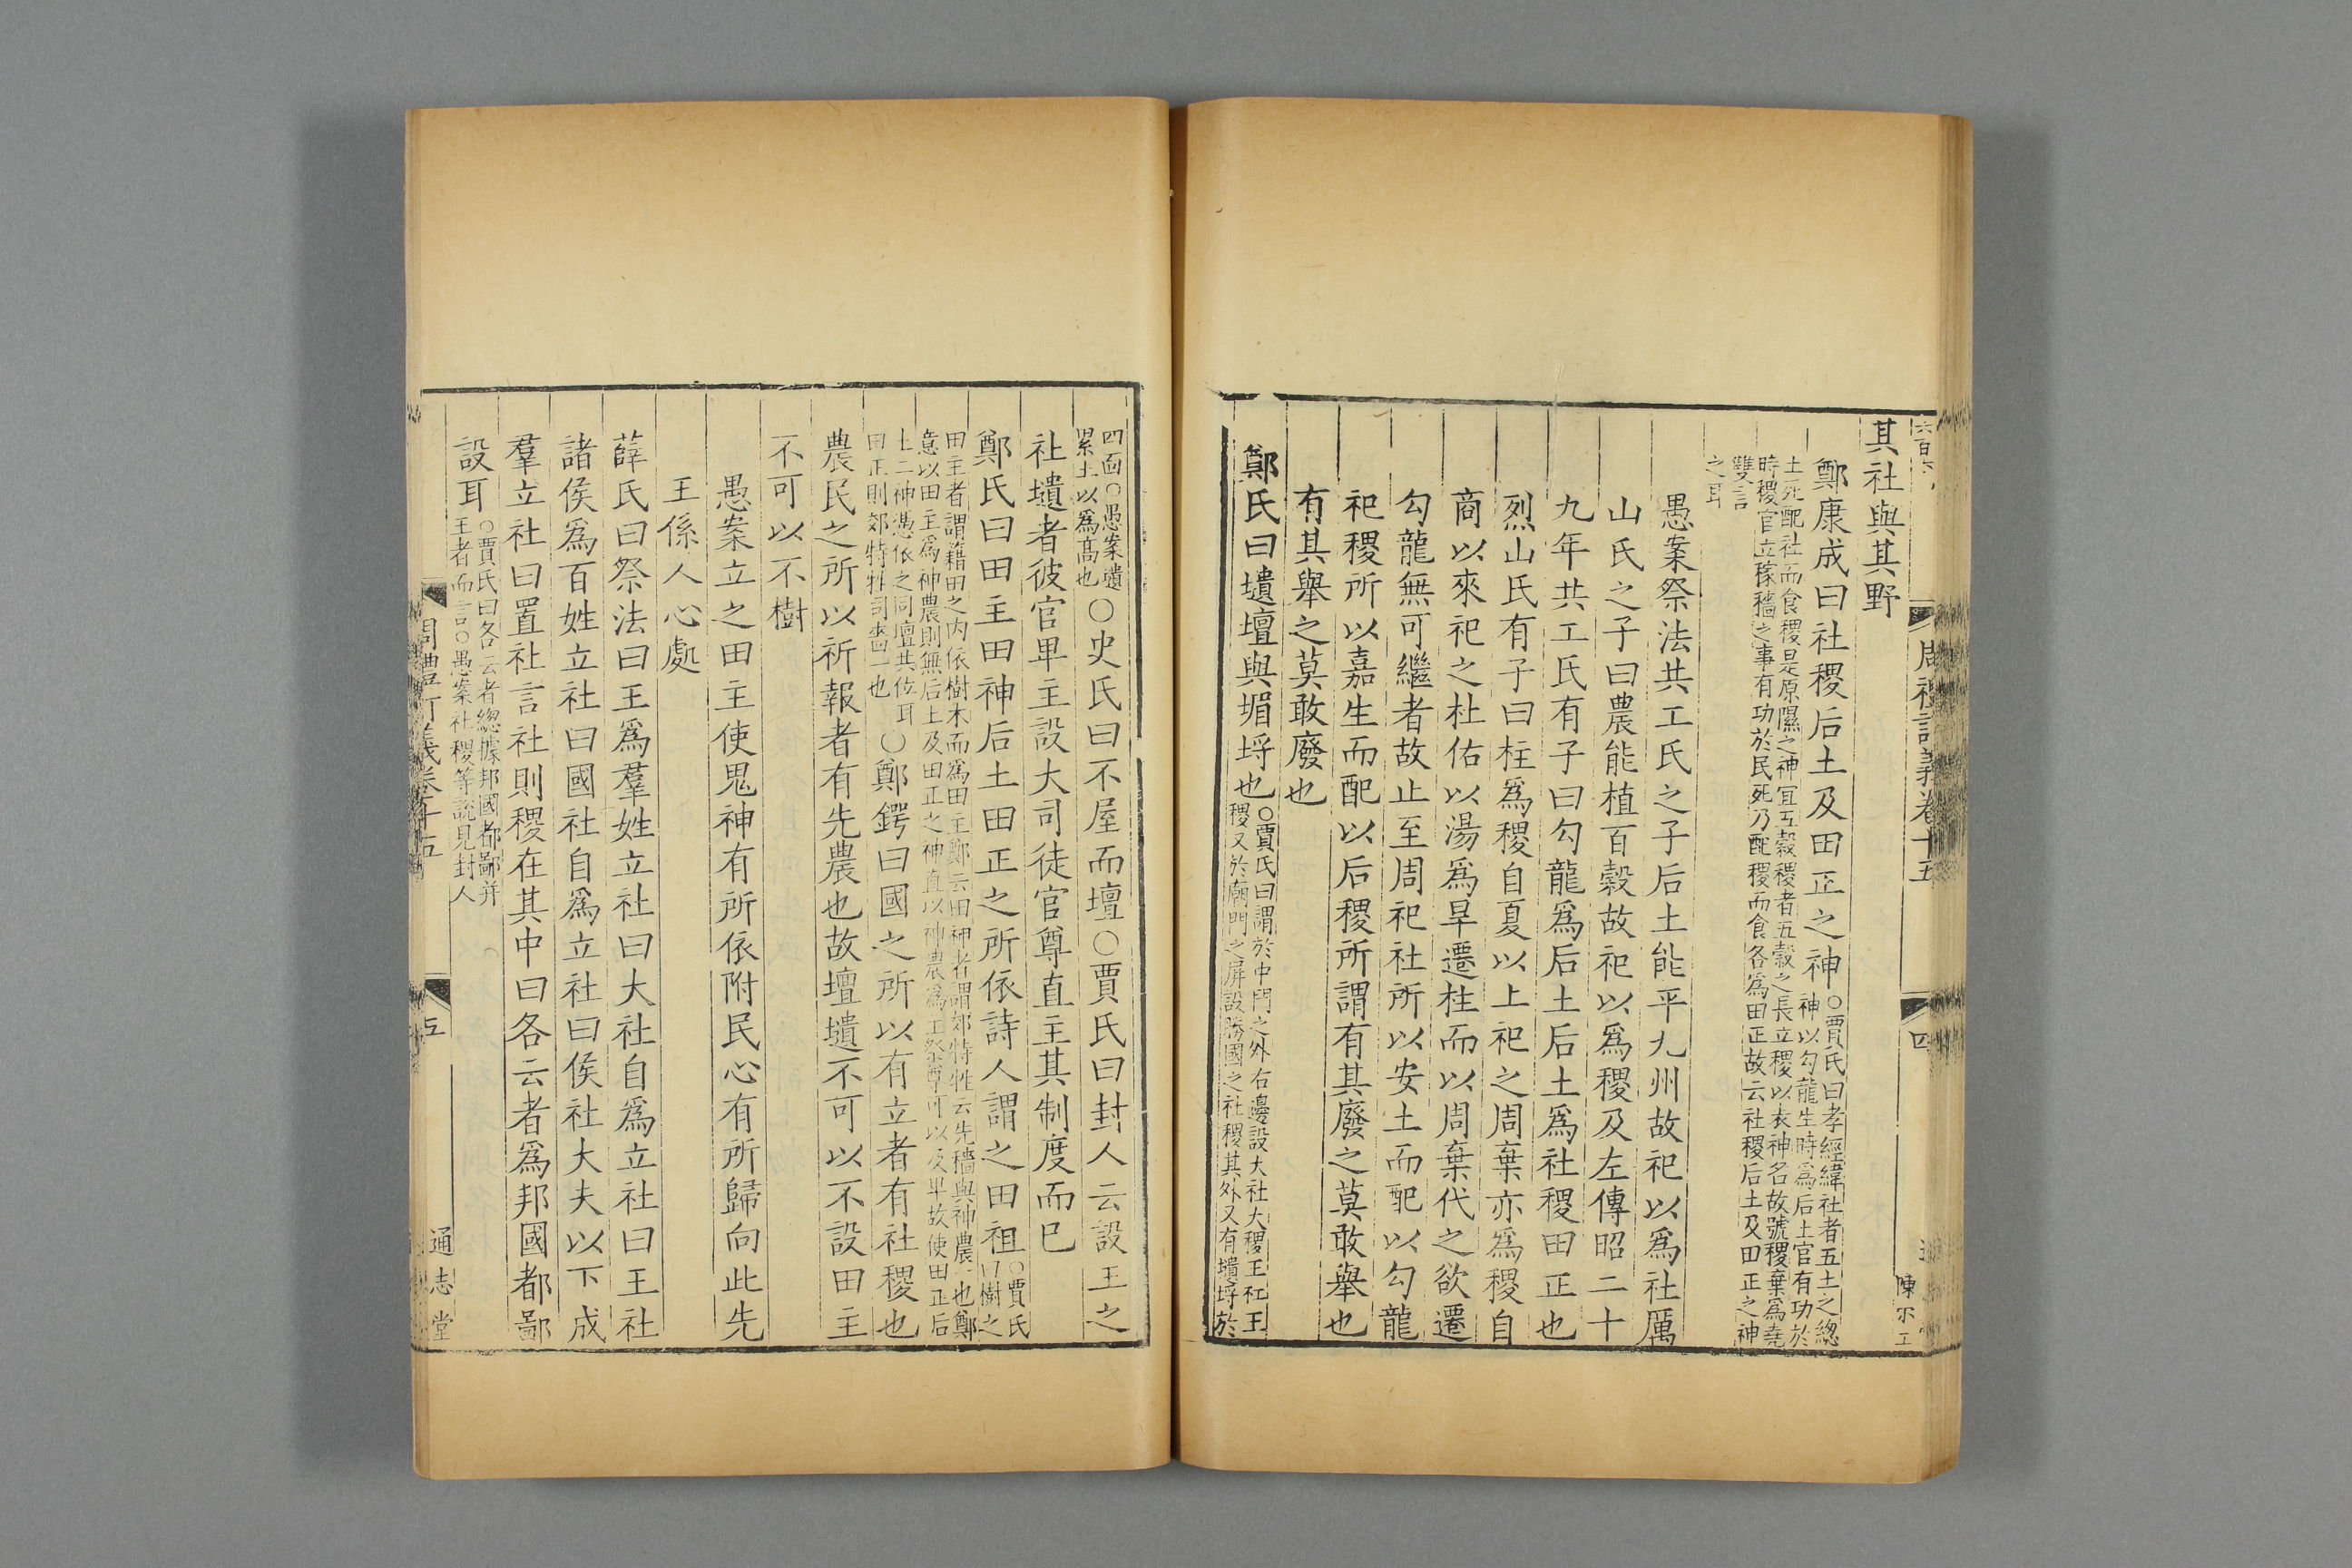 其社與其野
鄭康成曰社稷后土及田正之神
○賈氏曰孝經緯社者五土之總
神以勾龍生時爲后土官有功於
土死配社而食稷是原隰之神宜五穀稷者五穀之長立稷以表神名故號稷棄爲堯
時稷官立稼穡之事有功於民死乃配稷而食各爲田正故云社稷后土及田正之神
雙言
之耳
愚案祭法共工氏之子后土能平九州故祀以爲社厲
山氏之子曰農能植百穀故祀以爲稷及左傳昭二十
九年共工氏有子曰勾龍爲后土后土爲社稷田正也
烈山氏有子曰柱爲稷自夏以上祀之周棄亦爲稷自
商以來祀之杜佑以湯爲旱遷柱而以周棄代之欲遷
勾龍無可繼者故止至周祀社所以安土而配以勾龍
祀稷所以嘉生而配以后稷所謂有其廢之莫敢舉也
有其舉之莫敢廢也
鄭氏曰壝壇與堳埒也
○賈氏曰謂於中門之外右邊設大社大稷王社王
稷又於廟門之屏設勝國之社稷其外又有壝埒於
四靣○愚案壝
累土以爲髙也
○史氏曰不屋而壇○賈氏曰封人云設王之
社壝者彼官卑主設大司徒官尊直主其制度而已
鄭氏曰田主田神后土田正之所依詩人謂之田祖
○賈氏
曰樹之
田主者謂籍田之内依樹木而爲田主鄭云田神者謂郊特牲云先穡與神農一也鄭
意以田主爲神農則無后土及田正之神直以神農爲主祭尊可以及卑故使田正后
土二神憑依之同壇共位耳
田正則郊特牲司嗇一也
○鄭鍔曰國之所以有立者有社稷也
農民之所以祈報者有先農也故壇壝不可以不設田主
不可以不樹
愚案立之田主使鬼神有所依附民心有所歸向此先
王係人心處
薛氏曰祭法曰王爲羣姓立社曰大社自爲立社曰王社
諸侯爲百姓立社曰國社自爲立社曰侯社大夫以下成
羣立社曰置社言社則稷在其中曰各云者爲邦國都鄙
設耳
○賈氏曰各云者總據邦國都鄙并
王者而言○愚案社稷等說見封人
周禮訂義卷十五
五
通志堂